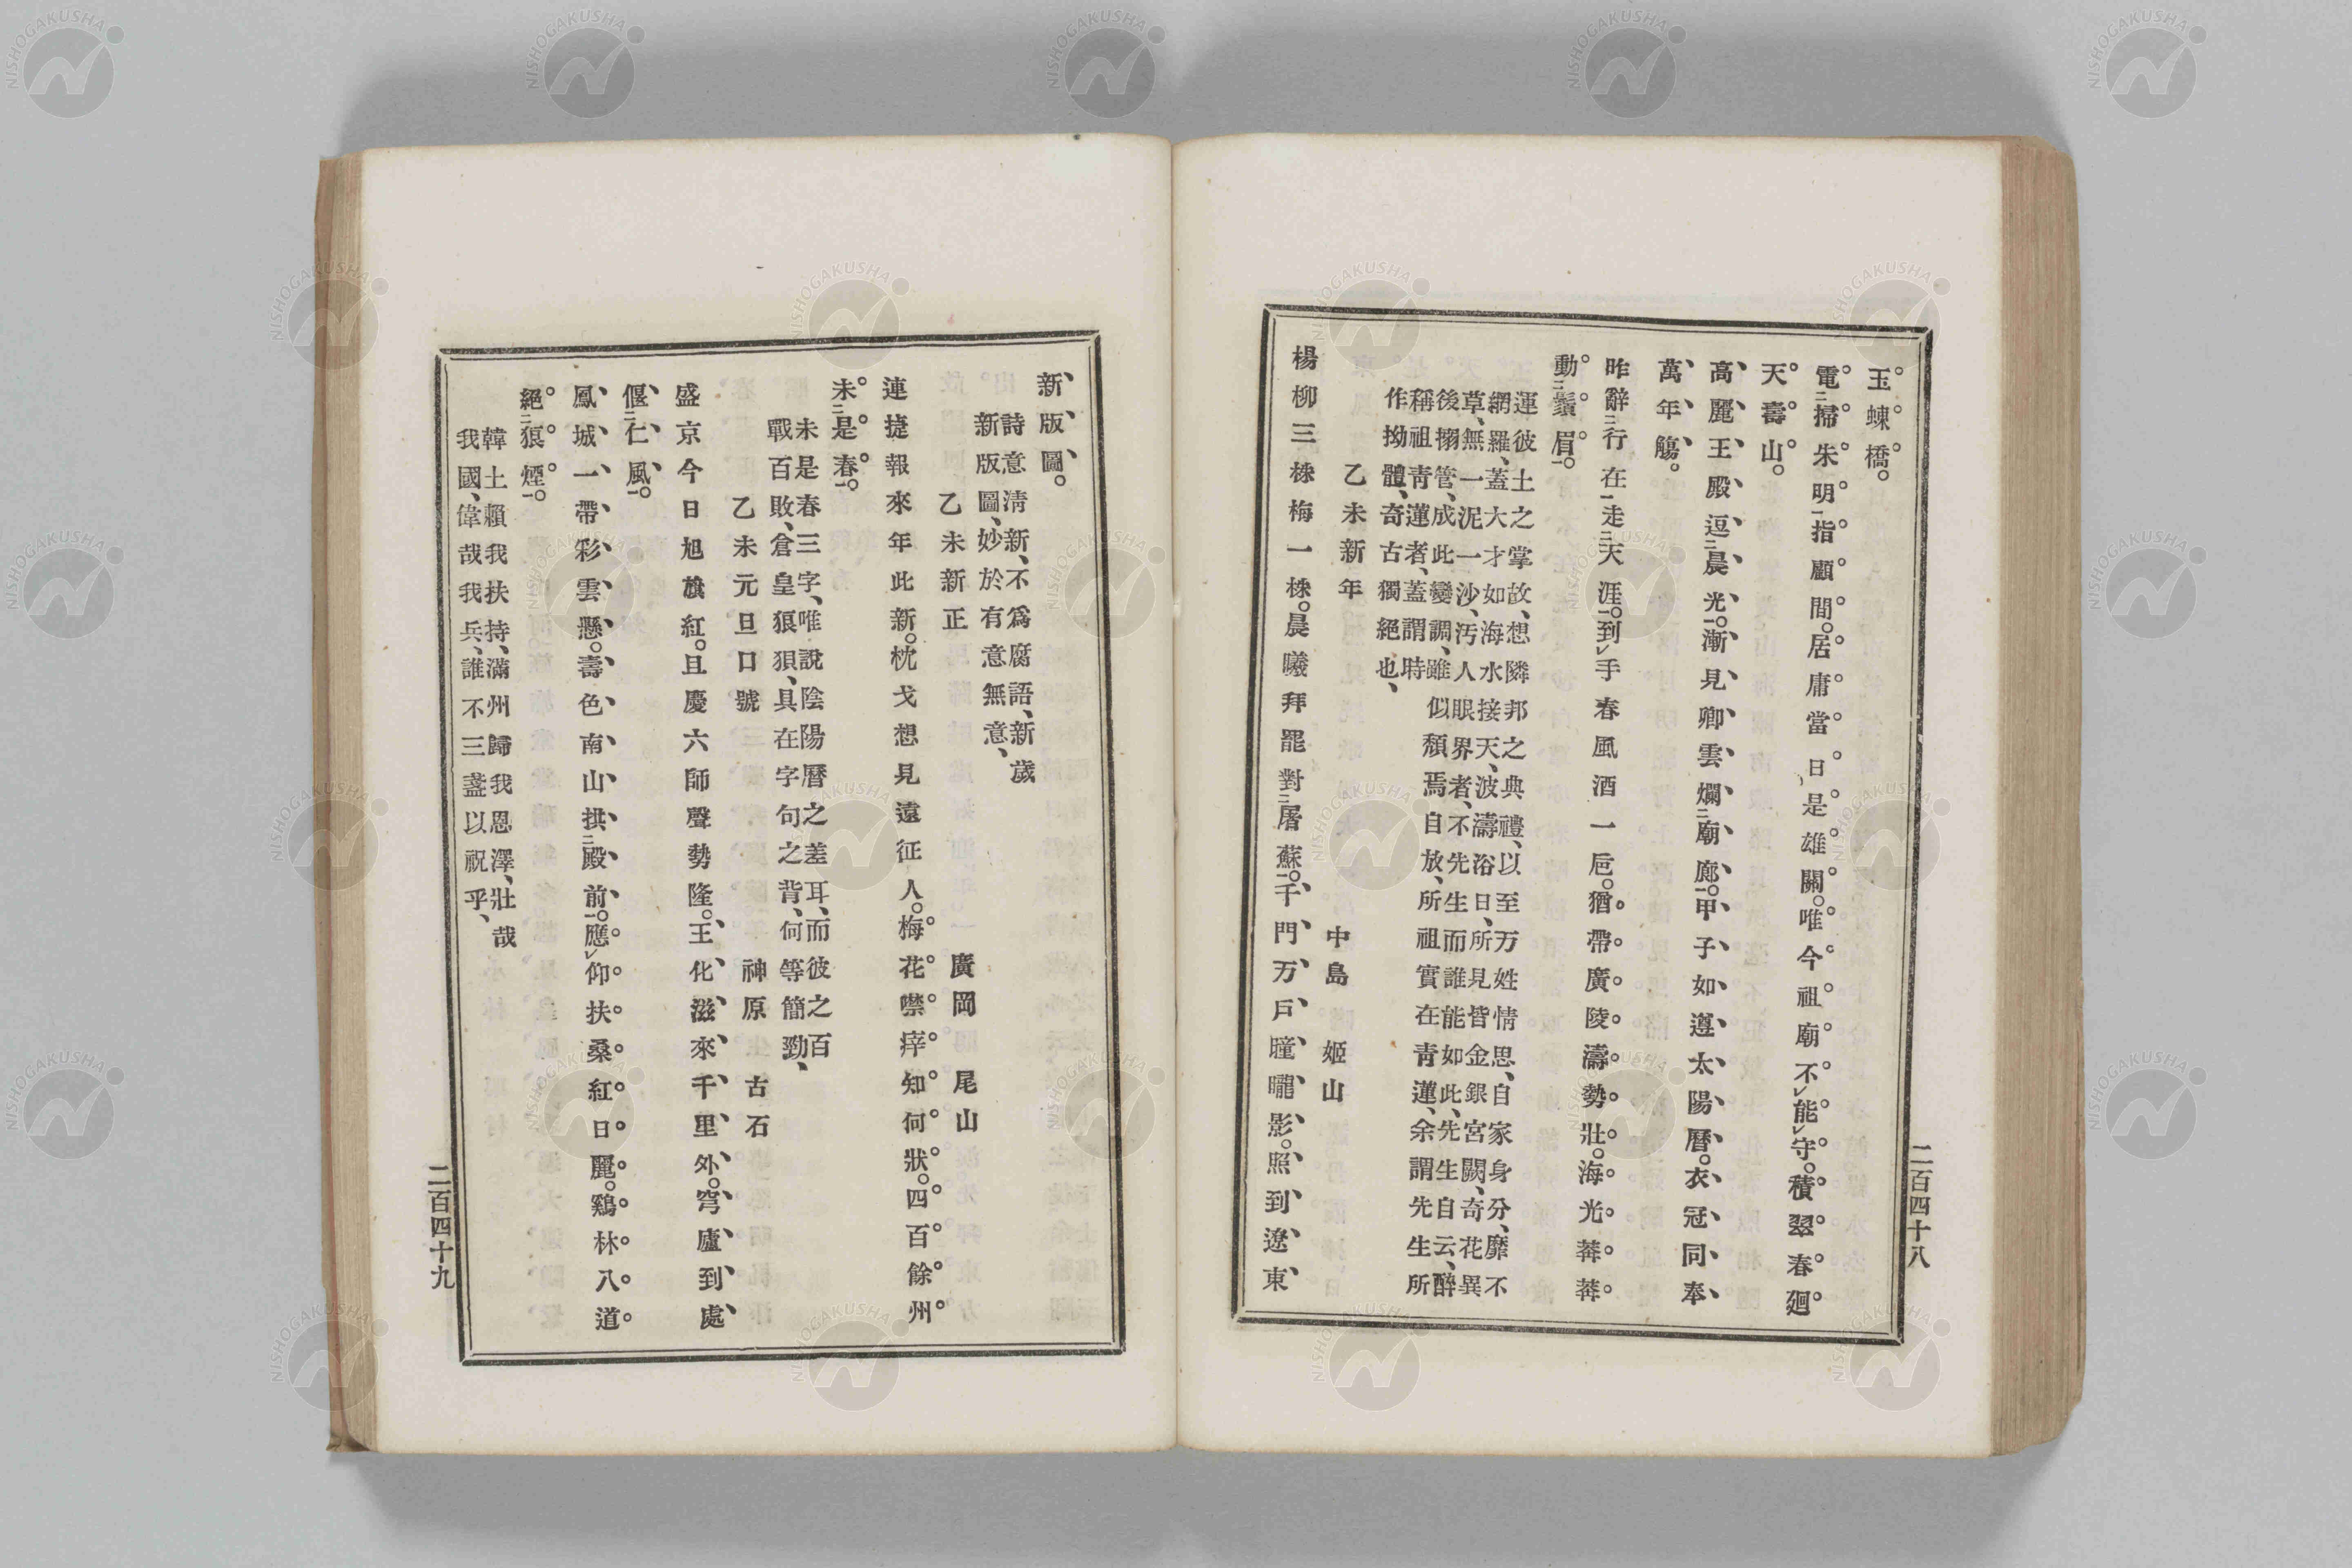 玉蝀橋。
電掃朱明指顧間。居庸當日是雄關。唯今祖廟不能守。積翠春廻
天壽山。
高麗王殿逗晨光。漸見卿雲爛廟廊。甲子如遵太陽曆。衣冠同奉
萬年觴。
昨辭行在走天涯。到手春風酒一巵。猶帶廣陵濤勢壯。海光莽莽
動鬚眉。
運彼土之掌故、想隣邦之典禮、以至万姓情思、自家身分、靡不
網羅、蓋大才如海水接天、波濤浴日、所見皆金銀宮闕、奇花異
草、無一泥一沙、汚人眼界者、不先生而誰能如此、先生自云、醉
後搦管、成此變調、雖似頽焉自放、所祖實在青蓮、余謂先生所
稱祖青蓮者、蓋謂時
作拗體、奇古獨絕也、
乙未新年　中島　姬山
楊柳三株梅一株。晨曦拜罷對屠蘇。千門万戶曈曨影。照到遼東
二百四十八
新版圖。
詩意淸新、不爲腐語、新歲
新版圖、妙於有意無意、
乙未新正　廣岡　尾山
連捷報來年此新。枕戈想見遠征人。梅花噤瘁知何狀。四百餘州
未是春。
未是春三字、唯說陰陽曆之差耳、而彼之百
戰百敗、倉皇狼狽、具在字句之背、何等簡勁、
乙未元旦口號　神原　古石
盛京今日旭旗紅。且慶六師聲勢隆。王化滋來千里外。穹廬到處
偃仁風。
鳳城一帶彩雲懸。壽色南山拱殿前。應仰扶桑紅日麗。鷄林八道
絕狼煙。
韓土賴我扶持、滿州歸我恩澤、壯哉
我國、偉哉我兵、誰不三盞以祝乎、
二百四十九